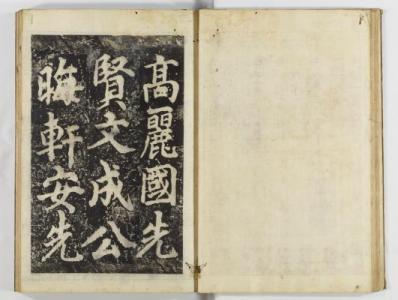 高麗國先
賢文成公
晦軒安先